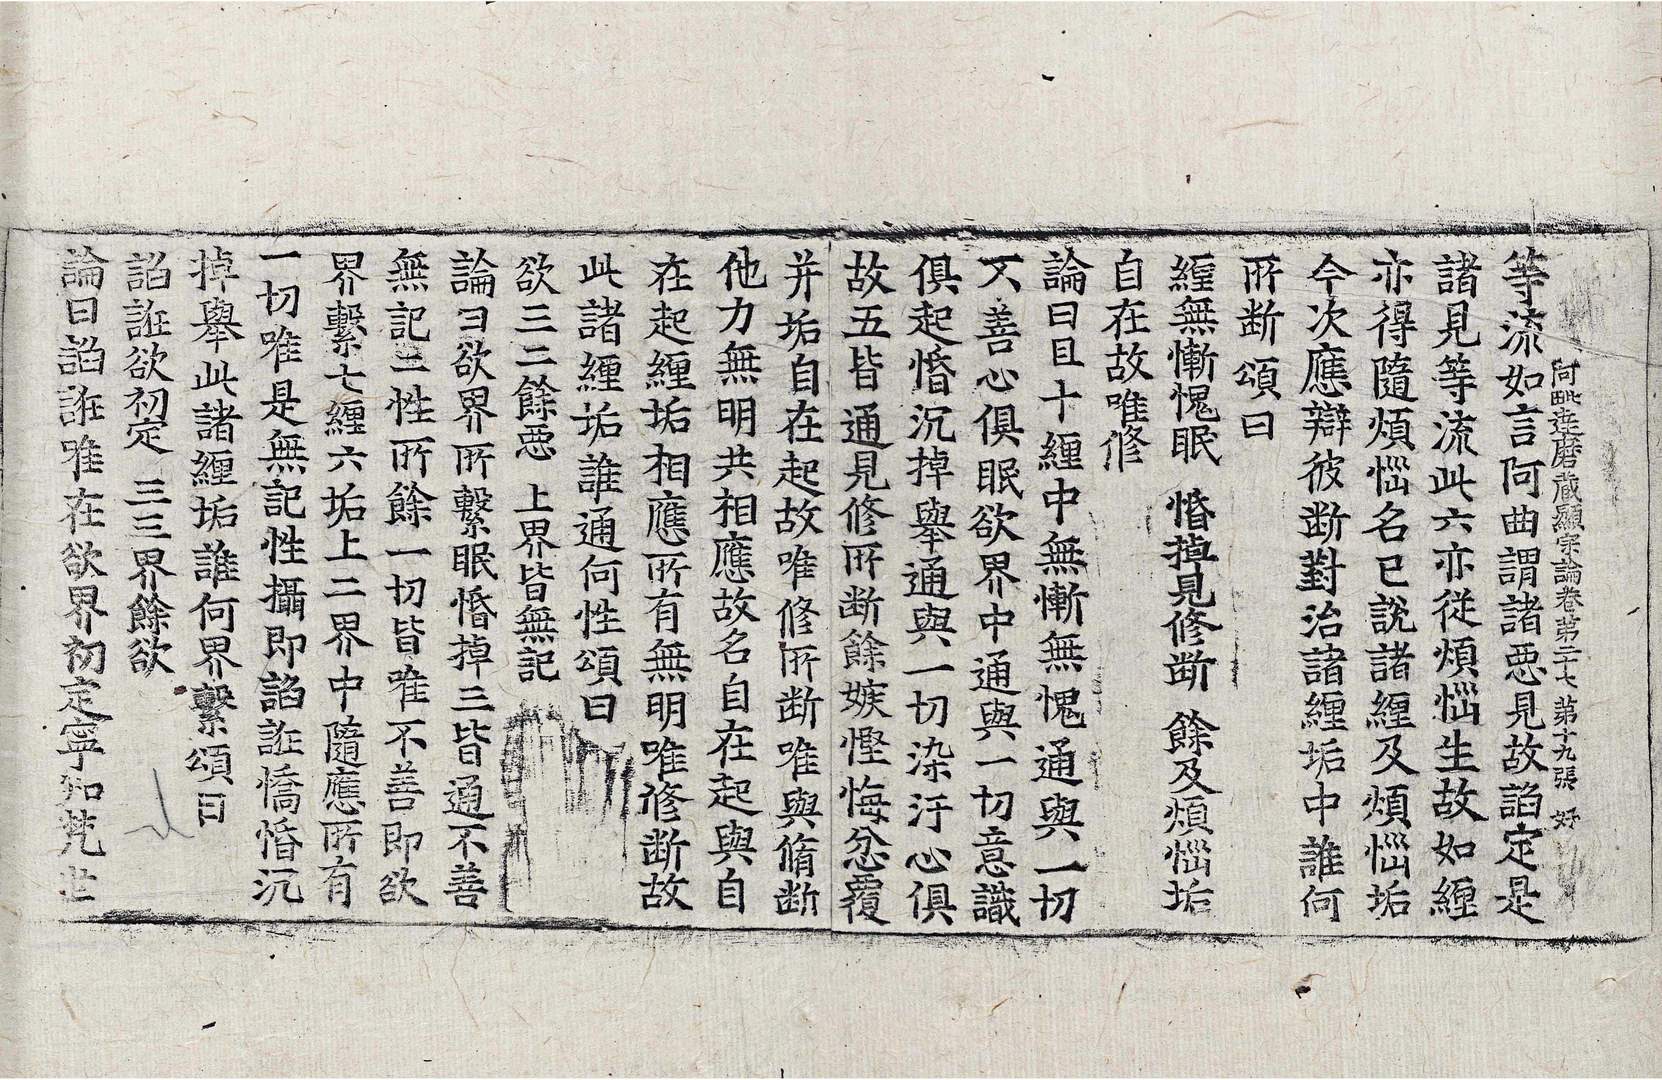 阿毗達磨蔵顯宗論卷第二十七 第十九張 好
等流如言何曲謂諸惡見故諂定是
諸見等流此六亦従煩惱生故如纏
亦得隨煩惱名已說諸纏及煩惱垢
今次應辯彼断對治諸纏垢中誰何
所断頌曰
纏無慚愧眠 惛掉見修断 餘及煩惱垢
自在故唯修
論曰且十纏中無慚無愧通與一切
不善心俱眠欲界中通與一切意識
俱起惛沉掉舉通與一切染汙心俱
故五皆通見修所断餘嫉慳悔忿覆
并垢自在起故唯修所断唯與脩断
他力無明共相應故名自在起與自
在起纏垢相應所有無明唯修断故
此諸纏垢誰通何性頌曰
欲三二餘惡 上界皆無記
論曰欲界所繫眠惛掉三皆通不善
無記二性所餘一切皆唯不善即欲
界繫七纏六垢上二界中隨應所有
一切唯是無記性攝即諂誑憍惛沉
掉舉此諸纏垢誰何界繫頌曰
諂誑欲初定 三三界餘欲
論曰諂誑唯在欲界初定寧知梵世